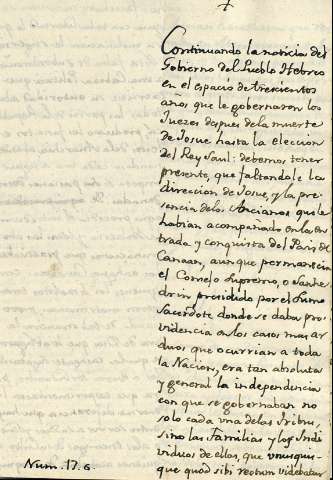 Continuando la noticia del
Gobierno del Pueblo Hebreo
en el espacio de trescientos
años que le gobernaron los
Juezes despues de la muerte
de Josue hasta la eleccion
del Rey Saul: debemos tener
presente, que faltandole la
direccion de Josue, y la pre
sencia de los Ancianos que le
habian acompañado en la en
trada y conquista del Pais de
Canaan, aunque permanecia
el Consejo Supremo, o Sanhe
drin presidido por el Sumo
Sacerdote donde se daba pro
videncia en los casos mas ar
duos que ocurrian a toda
la Nacion, era tan absoluta
y general la independencia
con que se gobernaban no
solo cada una de las Tribus,
sino las Familias y los Indi
viduos de ellas, que unusquis-
que quod sibi rectum videbatur
Num. 17. 6.